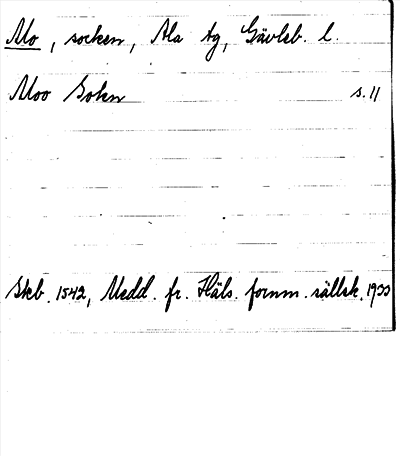 Mo, socken, Ala tg, Gävleb. l.
Moo Sokn s. 11
Skb. 1542, Medd. fr. Häls. fornm. sällsk. 1933